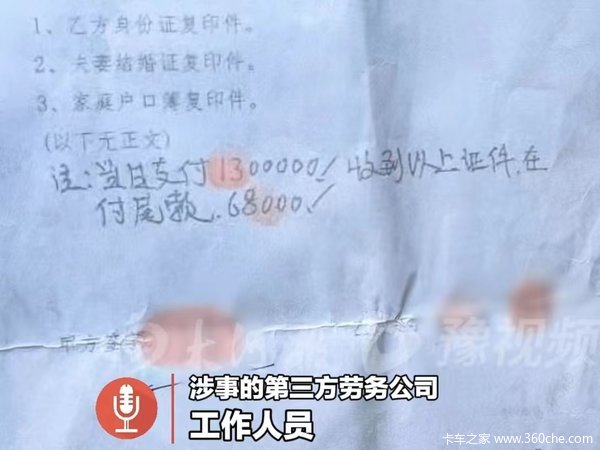 1、乙方身份证复印件。
2、夫妻结婚证复印件。
3、家庭户口簿复印件。
(以下无正文)
注:当日支付1300000/收到以上证件.在
付尾款.68000./
甲方签字
大河 豫视频
涉事的第三方劳务公司
工作人员
卡车之家 www.360che.com